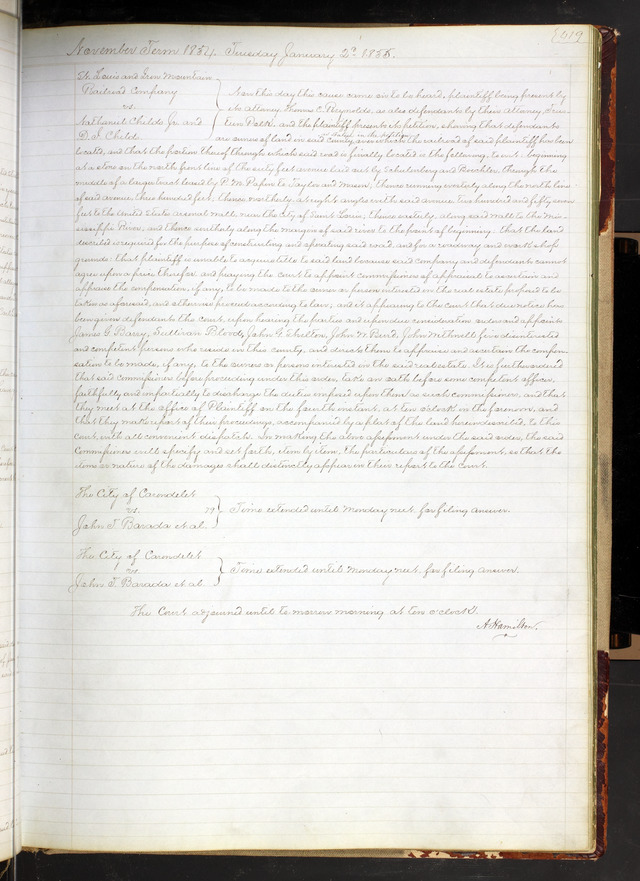 619
November Term 1854. Tuesday January 2d 1855.
St. Louis and Iron Mountain
Railroad Company
vs.
Nathaniel Childs Jr. and
D. T. Child
Now this day this cause came on to be heard, plaintiff being present by
its attorney Thomas C. Reynolds, as also defendants by their attorney,
and the plaintiff presents its petition, showing that defendants
are owners of land in said County, over which the railroad of said plaintiff has been
located, and that the portion thereof through which said road is finally located is the following, to wit: beginning
at a stone on the north front line of the sixty feet avenue laid out by Schulenberg and Boeckler, through the
middle of a large tract leased by P. M. Papin to Taylor and Mason; thence running easterly along the north line
of said avenue, three hundred feet; thence northerly, at right angles with the said avenue two hundred and fifty seven
feet to the United States arsenal wall, near the city of Saint Louis; thence easterly, along said wall to the Mis-
sissippi River, and thence southerly along the margin of said river to the point of beginning: that the land
described is required for the purposes of constructing and operating said road, and for a roadway and work shop
grounds: that plaintiff is unable to acquire title to said land because said company and defendants cannot
agree upon a price therefor and praying the court to appoint commissioners of appraisal to ascertain and
appraise the compensation, if any, to be made to the owner or person interested in the real estate proposed to be
taken as aforesaid, and otherwise proceed according to law; and it appearing to the Court that due notice has
been given defendants the court, upon hearing the parties and upon due consideration orders and appoints
James G. Barry, Sullivan Blood, John G. Shelton, John W. Burd, John Withnell five disinterested
and competent persons who reside in this county, and directs them to appraise and ascertain the compen-
sation to be made, if any, to the owners or persons interested in the said real estate. It is further ordered
that said commissioner before proceeding under this order, take an oath before some competent officer,
faithfully and impartially to discharge the duties imposed upon them as such commissioners, and that
they meet at the office of Plaintiff on the fourth instant, at ten o'clock in the forenoon, and
that they make report of their proceedings, accompanied by a plat of the land herein described, to this
Court, with all convenient dispatch. In making the above assessment under the said order, the said
Commissioner will specify and set forth, item by item, the particulars of the assessment, so that the
items or nature of the damages shall distinctly appear in their report to the court.
The City of Carondelet
vs. 19
John T. Barada et al.
Time extended until Monday next for filing answer.
The City of Carondelet
vs.
John T. Barada et al
Time extended until Monday next for filing answer.
The Court adjourned until to morrow morning at ten o'clock.
A. Hamilton.